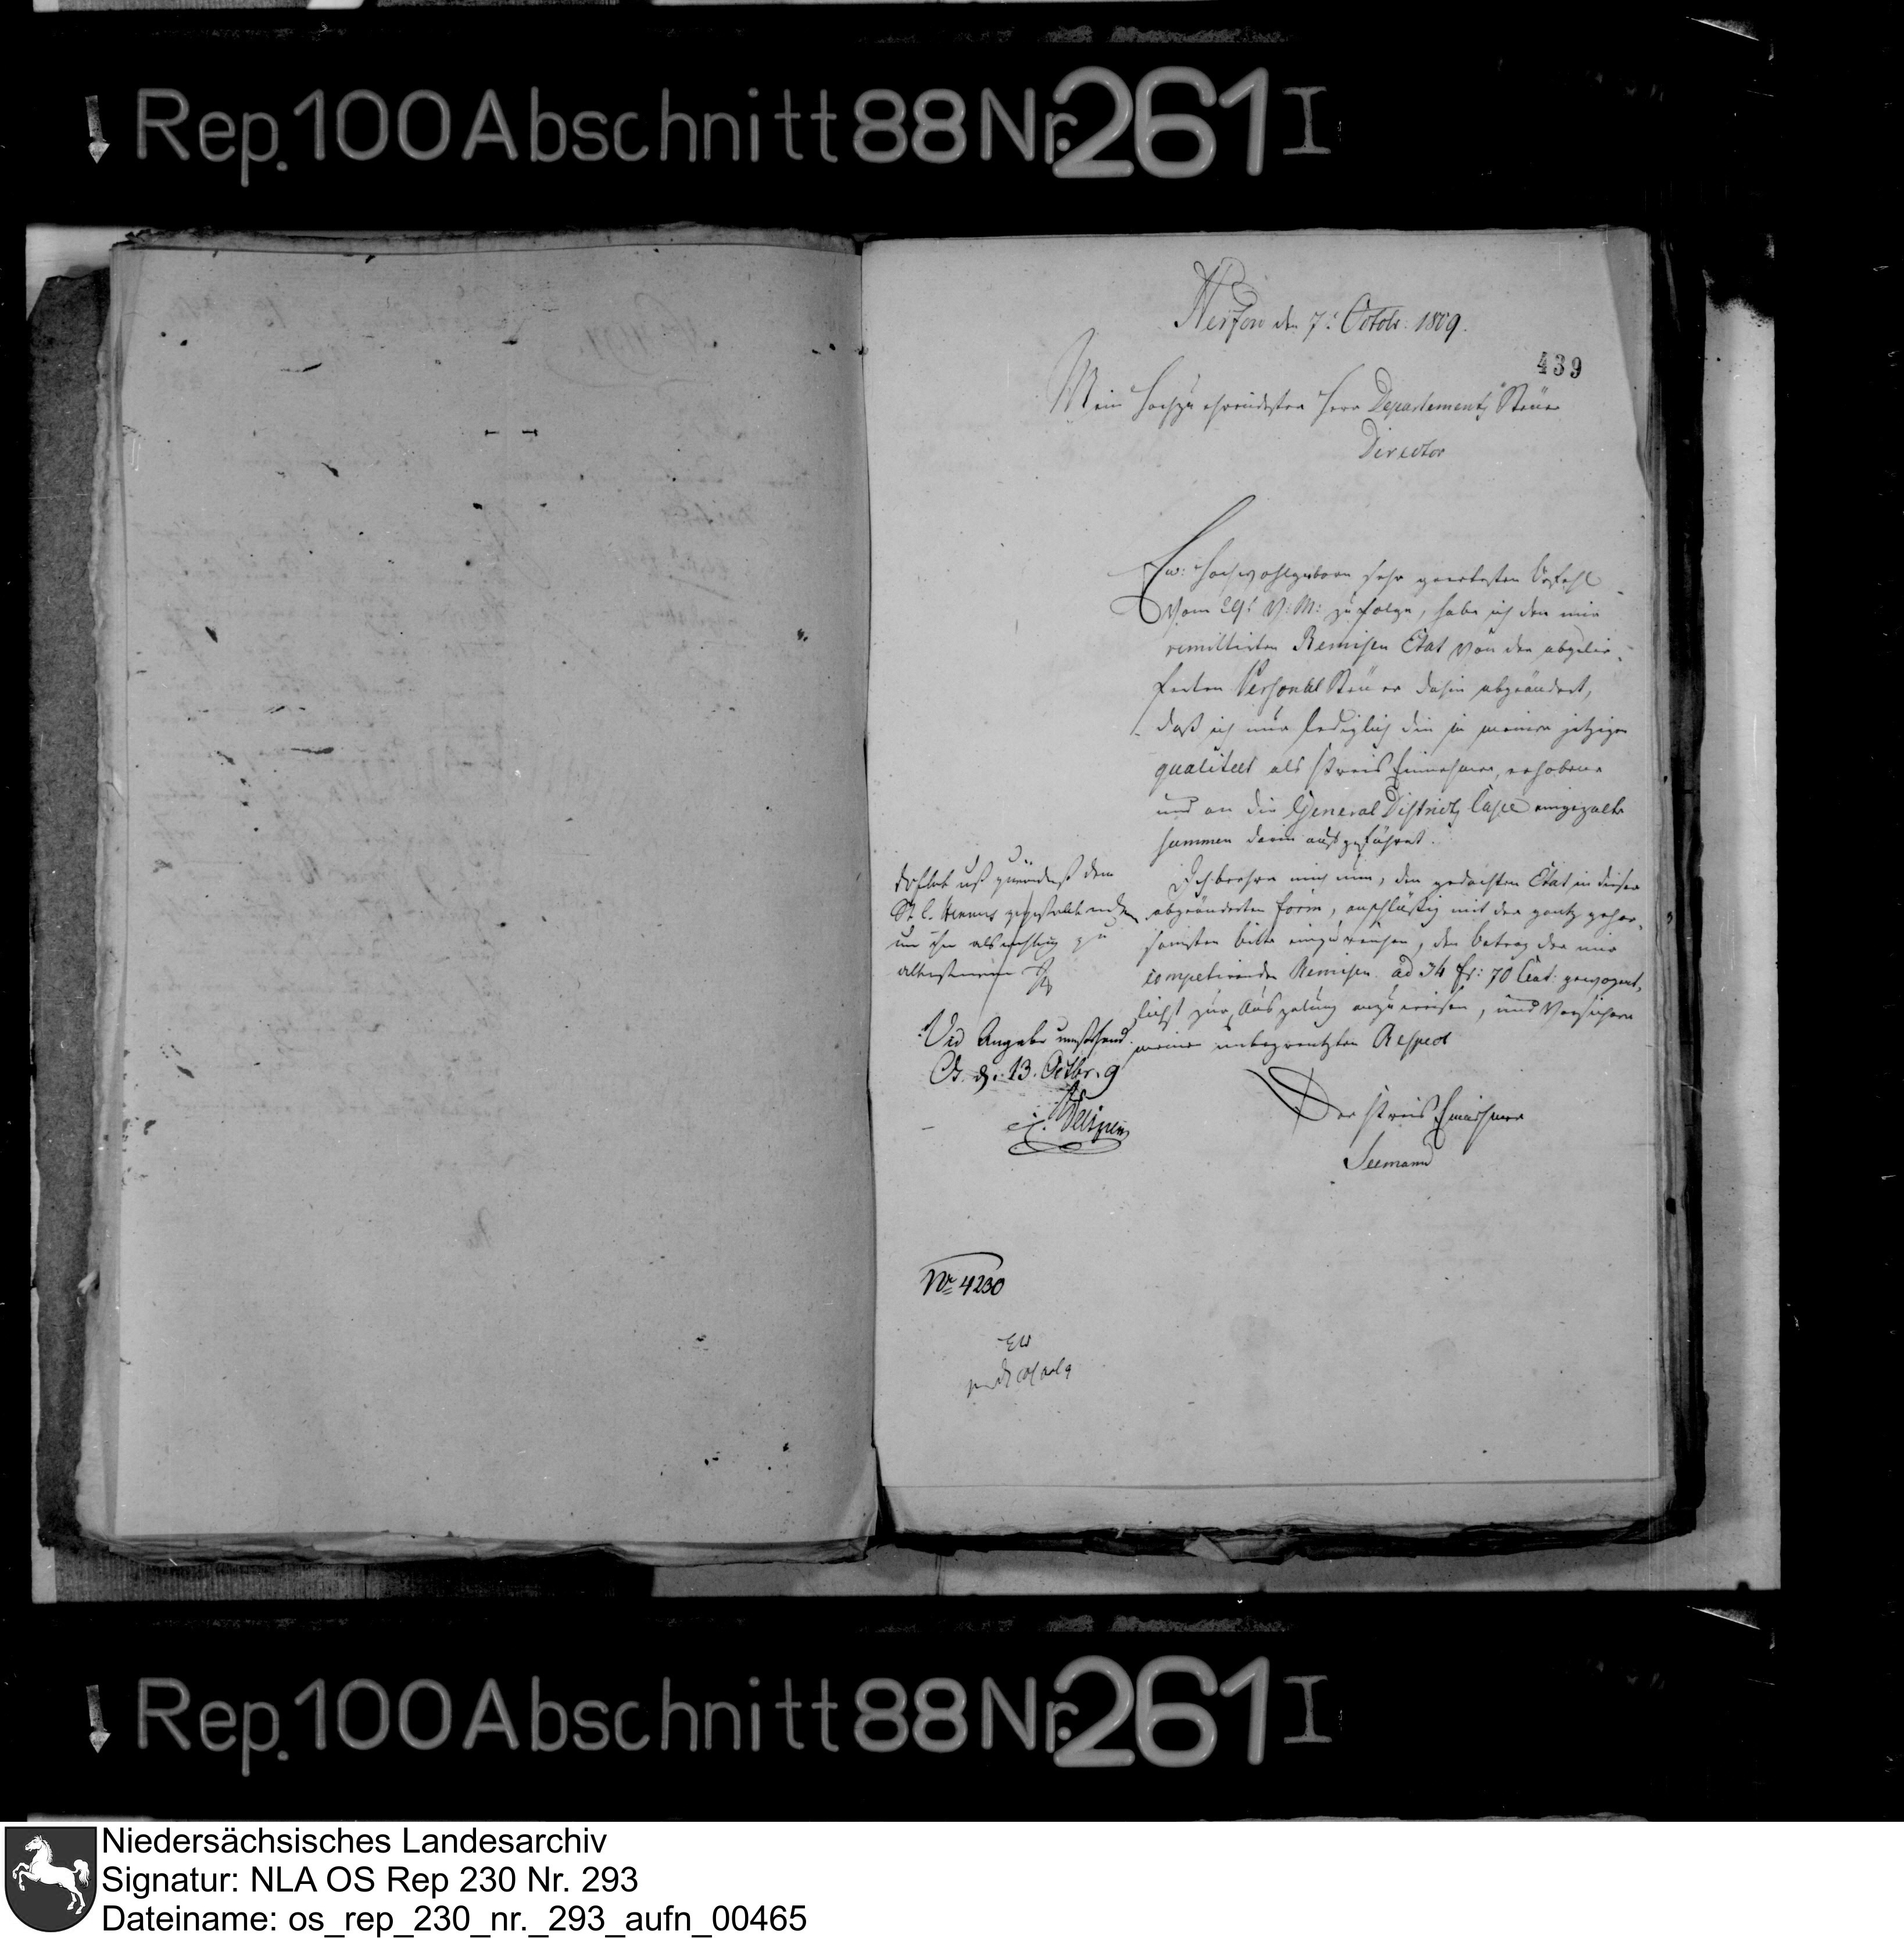 Rep. 100 Abschnitt 88 Nr. 261 I
den 7t Octobr: 1809.
439
Mein Hochzuehrendester Herr Departements Steuer
Director
Ew: Hochwohlgeboren sehr geehrtesten Befehl
vom 29t v: M: zufolge, habe ich den mir
remittirten Remisen Etat von der abgelie-
ferten Personal Steuer dahin abgeändert,
daß ich nur lediglich die in meiner jetzigen
qualitaet als Kreis Einnehmer, erhobene
und an die General Districts Casse eingezalte
summen darin aufgeführet.
Ich beehre mich nun, den gedachten Etat in dieser
abgeänderten form, mit der gantz gehor-
samsten bitte einzureichen, den betrag der mir
competirenden Remisen ad 34 fr: 70 Cent: gewogent-
lichst zur Auszalung anzuweisen, und versichere
meinen unbegrentzten Respect
Der Kreis Einnehmer
Seemann
um ihn als richtig zu
Vid Angabe umstehend.
O. d. 13. Octbr. 9
No 4230
Rep. 100 Abschnitt 88 Nr. 261 I
Niedersächsisches Landesarchiv
Signatur: NLA OS Rep 230 Nr. 293
Dateiname: os_rep_230_nr._293_aufn_00465